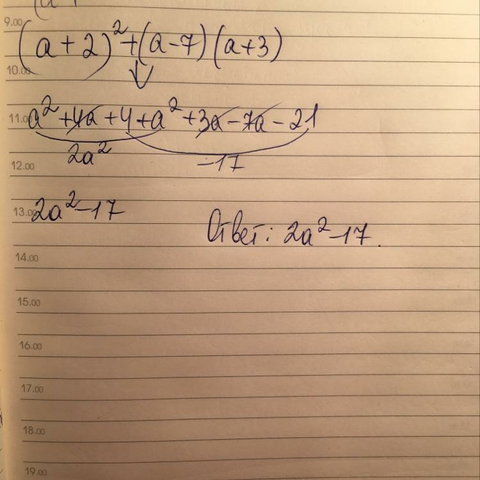 (a
9.00
(a+2)²+(a-7)(a+3)
10.00
↓
11.00 a²+4a+4+a²+3a-7a-21
2a² -17
12.00
13.00 2a²-17
Ответ: 2a²-17.
14.00
15.00
16.00
17.00
18.00
19.00